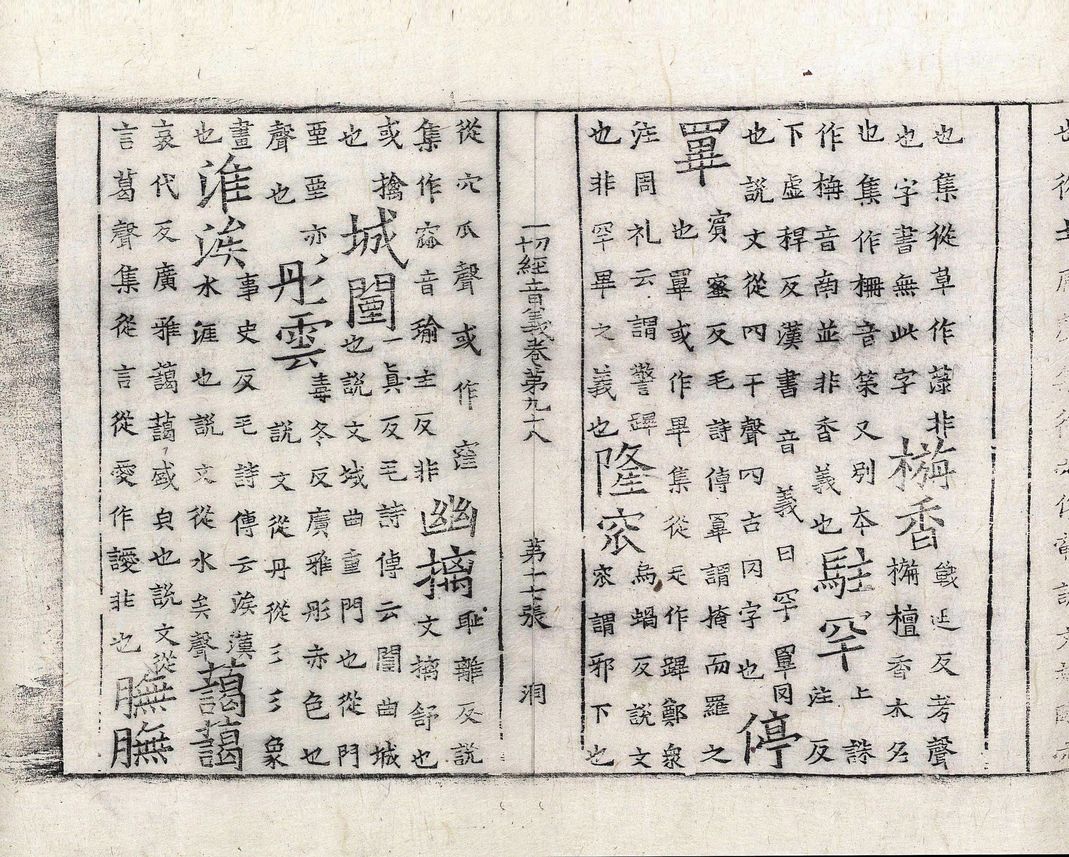 也集從草作薄非
也字書無此字栴香氈延反考聲
也集作柵音策又別夲栴檀香木名
作栴音南並非香義也駐罕上誅注反
下虛稈反漢書音義曰罕罼网
也說文從冈干聲冈古网字也停
罼賓蜜反毛詩傳罼謂掩而羅之
也罼或作畢集從足作蹕鄭衆
注周礼云謂警蹕
也非罕畢之義也隆窊烏蝸反說文窊謂邪下也
一切經音義卷第九十八 第十七張 洞
從穴瓜聲或作窪
集作窳音瑜主反非幽摛恥離反說文摛舒也
或擒
也城闉一真反毛詩傳云闉曲城也說文城曲重門也從門
垔垔亦
聲也彤雲毒冬反廣雅彤赤色也說文從丹從彡彡象
畫
也淮涘事史反毛詩傳云涘漢水涯也說文從水矣聲藹藹
哀代反廣雅藹藹盛皃也說文從
言葛聲集從言從愛作䜕非也膴膴